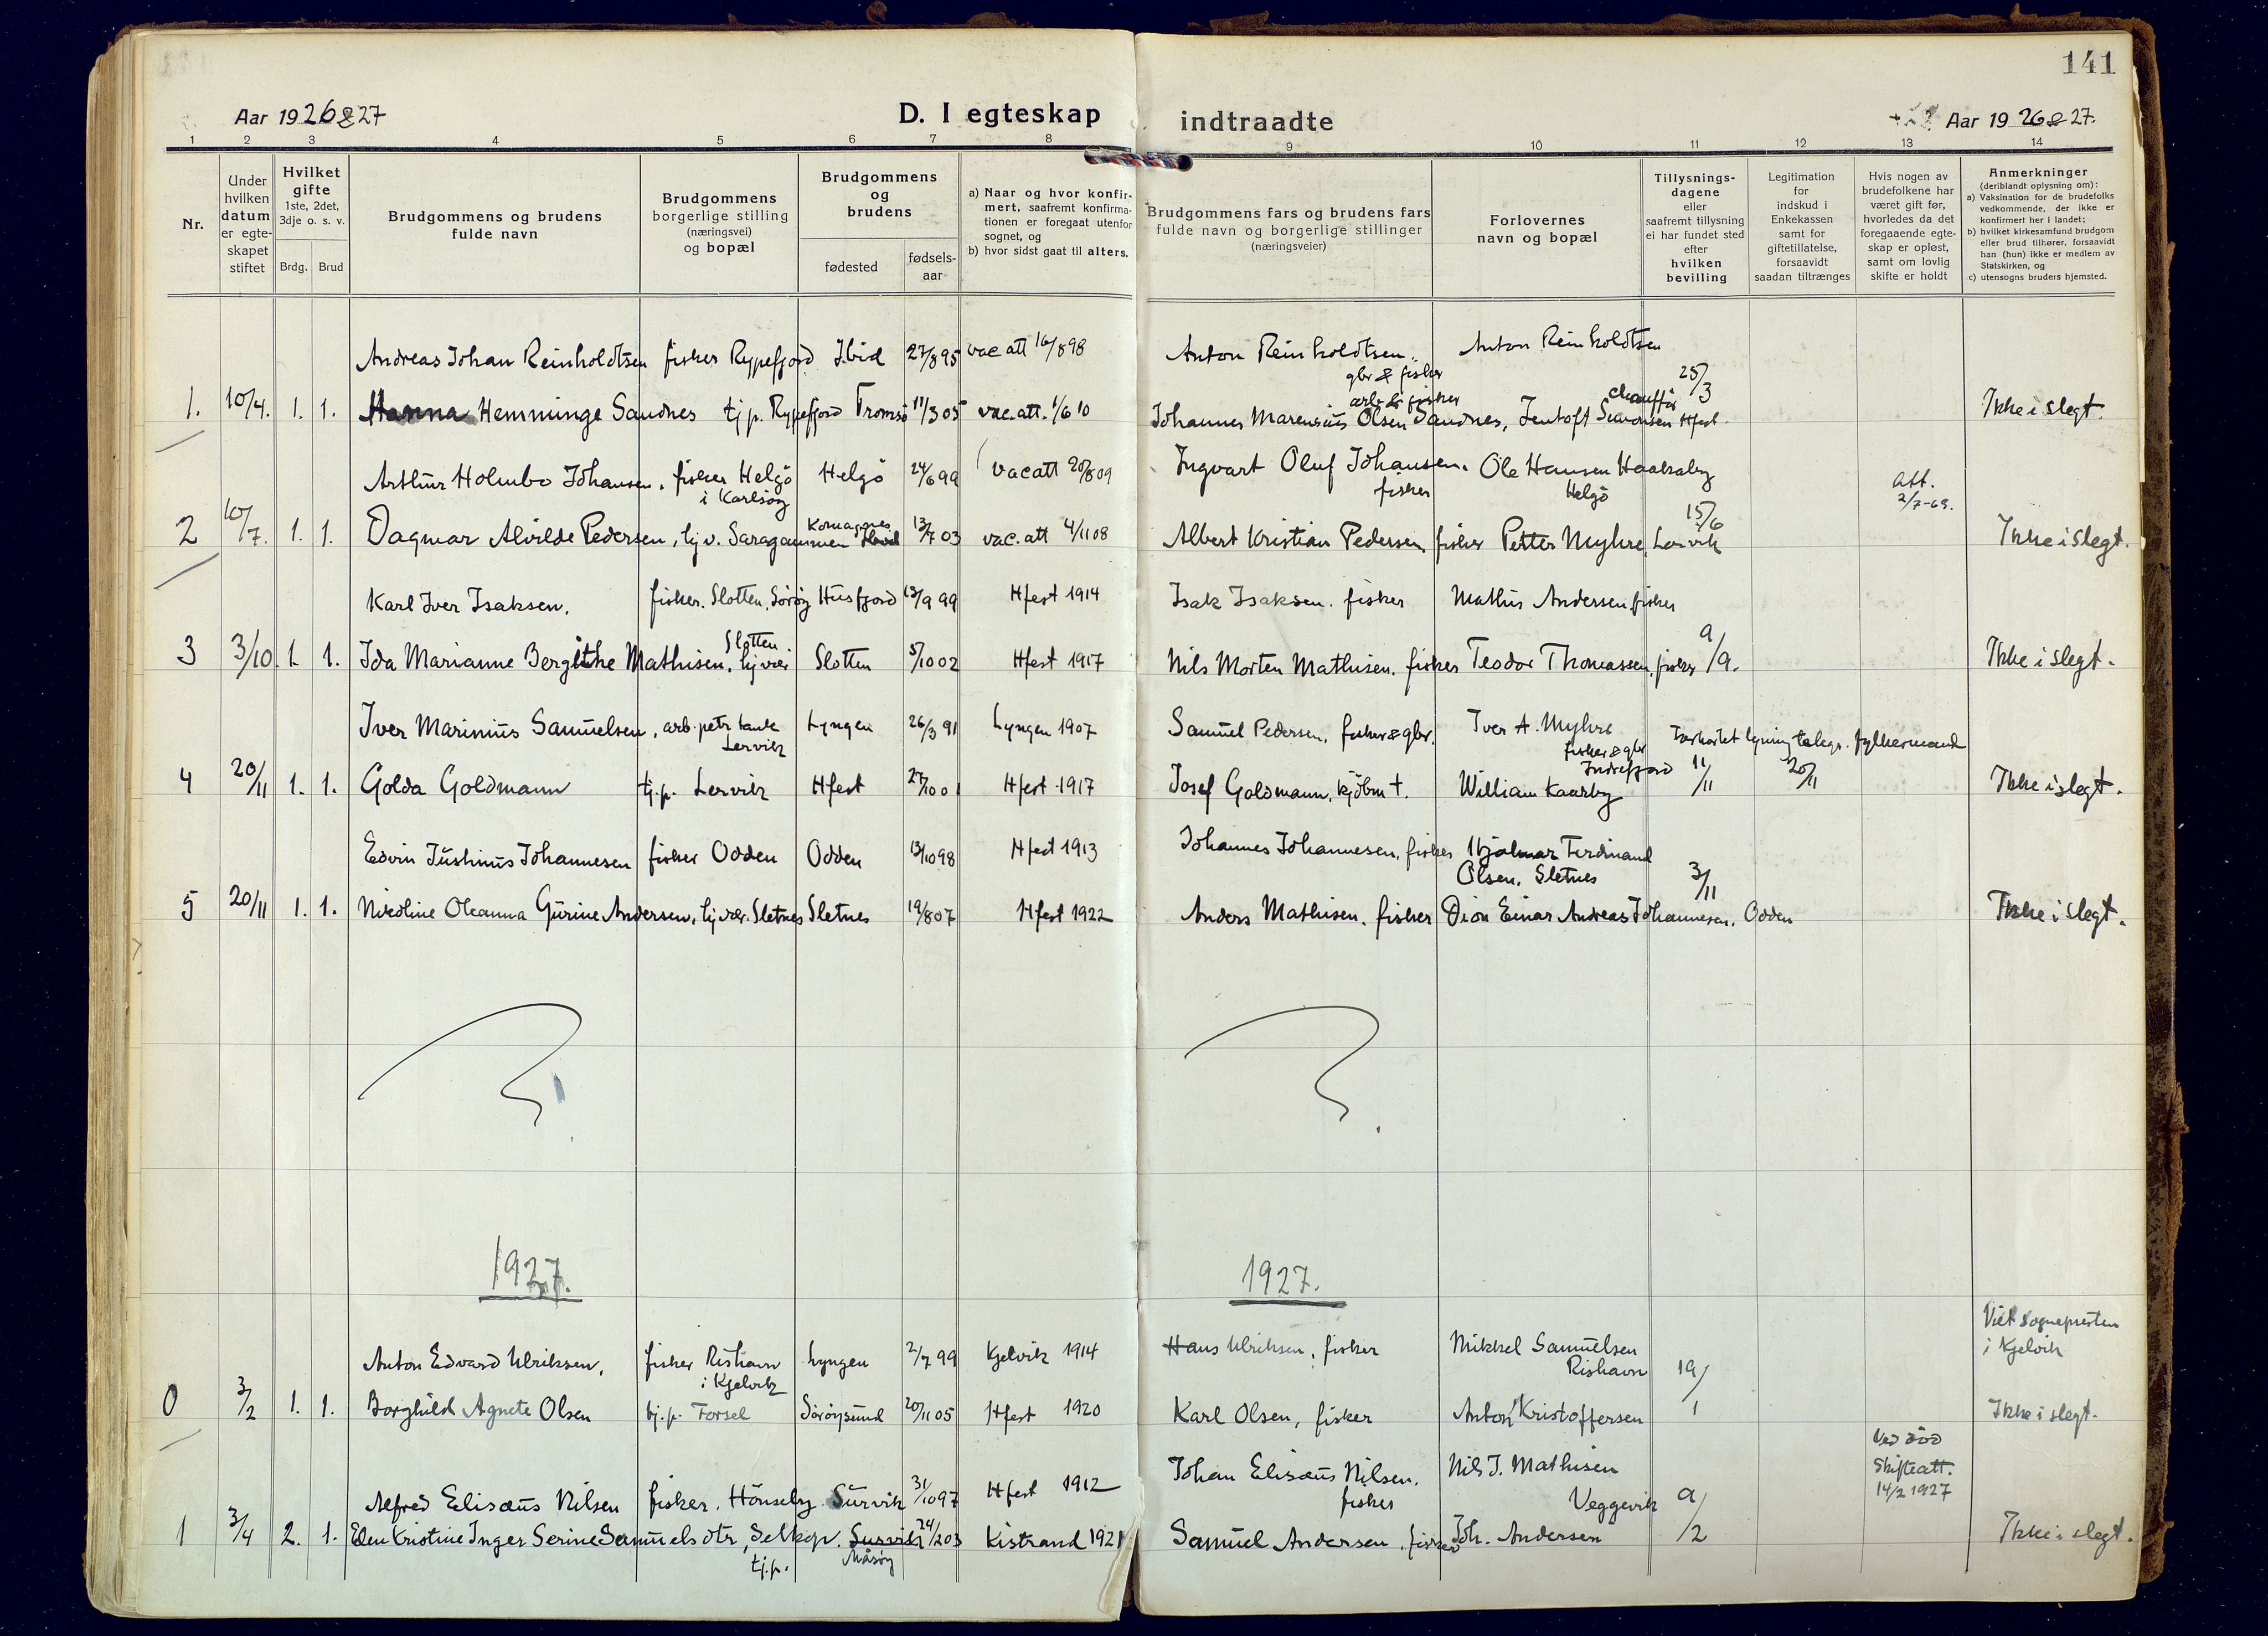 141
Aar 1926 & 27
D. I egteskap
indtraadte
Aar 1926 & 27.
1 2 3 4 5 6 7 8 9 10 11 12 13 14
Nr.
Under
hvilken
datum
er egte-
skapet
stiftet
Hvilket
gifte
1ste, 2det,
3dje o. s. v.
Brdg. Brud
Brudgommens og brudens
fulde navn
Brudgommens
borgerlige stilling
(næringsvei)
og bopæl
Brudgommens
og
brudens
fødested
fødsels-
aar
a) Naar og hvor konfir-
mert, saafremt konfirma-
tionen er foregaat utenfor
sognet, og
b) hvor sidst gaat til alters.
Brudgommens fars og brudens fars
fulde navn og borgerlige stillinger
(næringsveier)
Forlovernes
navn og bopæl
Tillysnings-
dagene
eller
saafremt tillysning
ei har fundet sted
efter
hvilken
bevilling
Legitimation
for
indskud i
Enkekassen
samt for
giftetillatelse,
forsaavidt
saadan tiltrænges
Hvis nogen av
brudefolkene har
været gift før,
hvorledes da det
foregaaende egte-
skap er opløst,
samt om lovlig
skifte er holdt
Anmerkninger
(deriblandt oplysning om):
a) Vaksination for de brudefolks
vedkommende, der ikke er
konfirmert her i landet;
b) hvilket kirkesamfund brudgom
eller brud tilhører, forsaavidt
han (hun) ikke er medlem av
Statskirken, og
c) utensogns bruders hjemsted.
Andreas Johan Reinholdtsen fisker Rypefjord Ibid 27/8 95 vac att 16/8 98 Anton Reinholdtsen. Anton Reinholdtsen
gbr & fisker 25/3
arb & fisker chauffør
1. 10/4. 1. 1. Hanna Hemminge Sandnes tj p. Rypefjord Tromsø 11/3 05 vac. att. 1/6 10 Johannes Marensius Olsen Sandnes, Jentoft Simonsen Hfest. Ikke i slegt.
Arthur Holmbo Johansen, fisker Helgö Helgö 24/6 99 vac att 20/8 09 Ingvart Oluf Johansen. Ole Hansen
i Karlsöy fisker Helgö
Att.
2/7-69.
2 10/7. 1. 1. Dagmar Alvilde Pedersen, tj v. Saragammen Komagnes 13/7 03 vac. att 4/11 08 Albert Kristian Pedersen, fisker Petter Myhre, Lervik 15/6 Ikke i slegt.
Karl Iver Isaksen, fisker. Slotten, Söröy Husfjord 13/9 99 Hfest 1914 Isak Isaksen. fisker Mathis Andersen fisker
Slotten
3 3/10. 1. 1. Ida Marianne Bergithe Mathisen, tj vær Slotten 5/10 02 Hfest 1917 Nils Morten Mathisen. fisker Teodor Thomassen, fisker 9/9. Ikke i slegt.
Iver Marinius Samuelsen, arb. petr tank Lyngen 26/3 91 Lyngen 1907 Samuel Pedersen, fisker & gbr. Iver A. Myhre
Lervik fisker & gbr
Indrefjord
Forkortet lysning telegr. fylkesmand
4 20/11 1. 1. Golda Goldmann tj. p. Lervik Hfest 27/10 01 Hfest 1917 Josef Goldmann, kjöbm †. William Kaarby 11/11 20/11 Ikke i slegt.
Edvin Justinus Johannesen fisker Odden Odden 13/10 98 Hfest 1913 Johannes Johannesen, fisker Hjalmar Ferdinand
Olsen. Sletnes
5 20/11 1. 1. Nikoline Oleanna Gurine Andersen, tj vær. Sletnes Sletnes 19/8 07 Hfest 1922 Anders Mathisen. fisker Dion Einar Andreas Johannesen. Odden 3/11 Ikke i slegt.
1927. 1927.
Viet sognepresten
i Kjelvik
Anton Edvard Ulriksen, fisker Rishavn Lyngen 2/7 99 Kjelvik 1914 Hans Ulriksen, fisker Mikkel Samuelsen
i Kjelvik Rishavn
0 3/2 1. 1. Borghild Agnete Olsen tj. p. Forsel Söröysund 20/11 05 Hfest 1920 Karl Olsen, fisker Anton Kristoffersen 19/1 Ikke i slegt.
Ved död
Skifteatt.
14/2 1927
Alfred Elisæus Nilsen fisker. Hönseby. Survik 31/10 97 Hfest 1912 Johan Elisæus Nilsen. Nils J. Mathisen
fisker Veggevik
1 3/4 2. 1. Elen Kristine Inger Serine Samuelsdtr, Selkop. Survik 24/2 03 Kistrand 1921 Samuel Andersen, fisker Joh. Andersen 9/2 Ikke i slegt.
tj. p. Måsöy